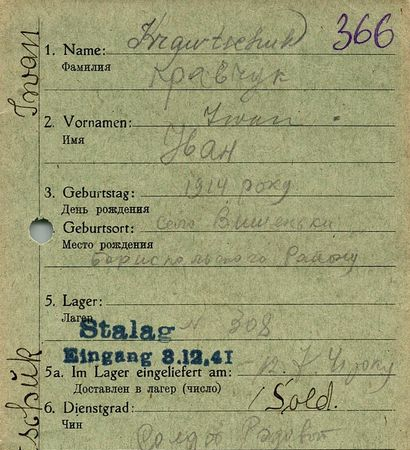 366
Iwan
1. Name: Krawtschuk
Фамилия Кравчук
2. Vornamen: Iwan
Имя Іван
3. Geburtstag: 1914 року
День рождения
4. Geburtsort: село Вишеньки
Место рождения
Бориспольского Району
5. Lager:
Лагер № 208
Stalag
Eingang 3.12.41
5a. Im Lager eingeliefert am:
Доставлен в лагер (число)
6. Dienstgrad: Sold.
Чин